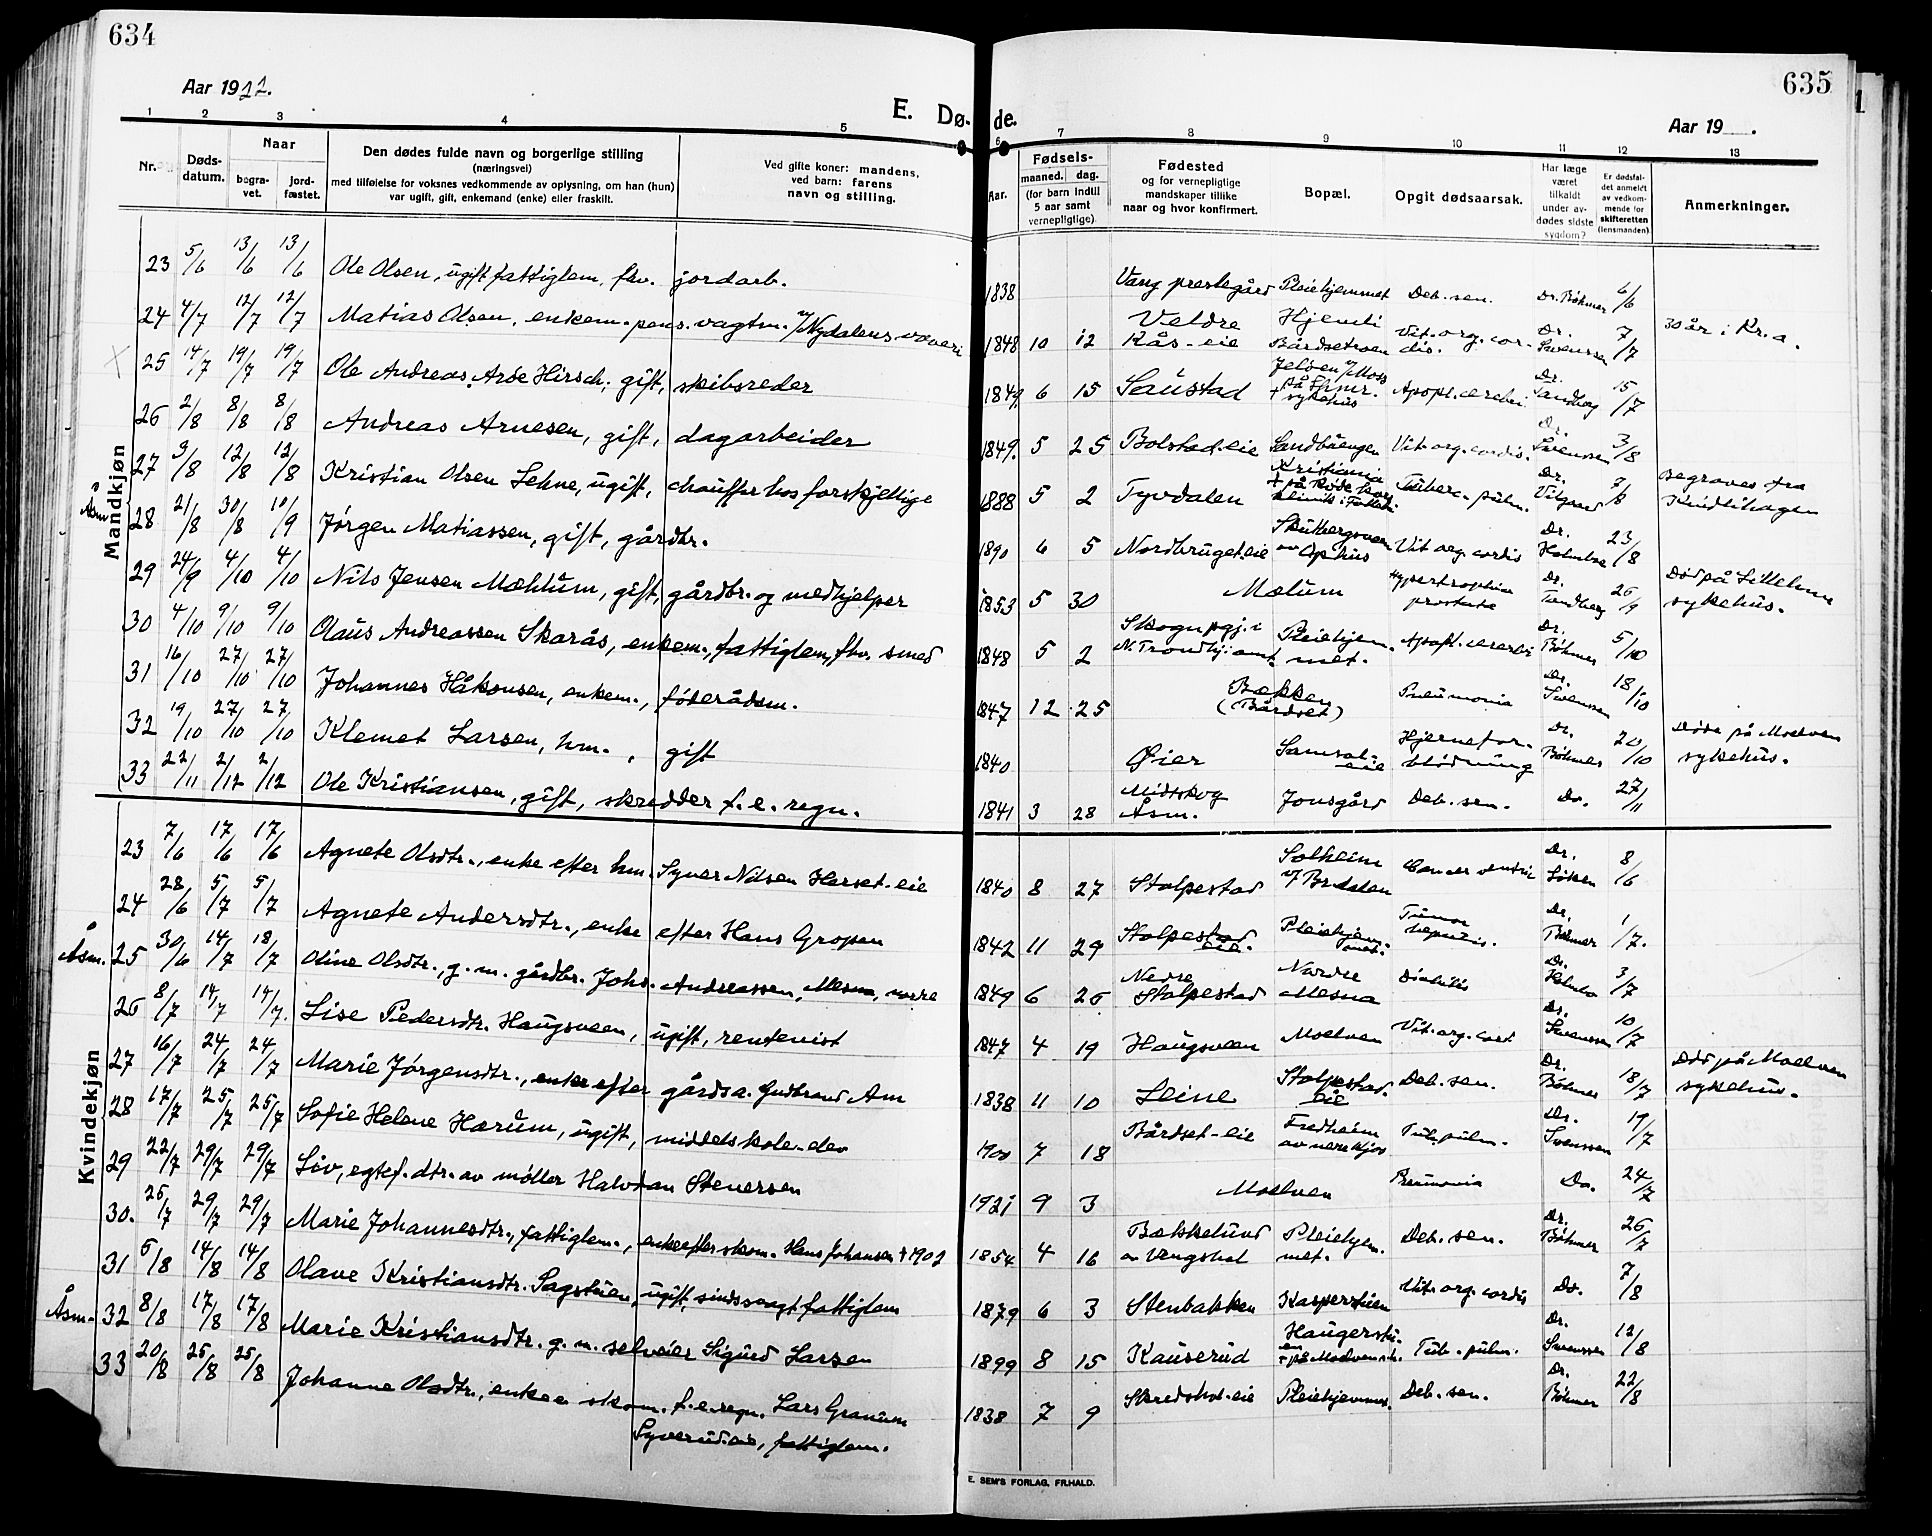 634
635
Aar 1922.
E. Dø- de.
Aar 19 .
1 2 3 4 5 6 7 8 9 10 11 12 13
Nr.
Døds-
datum.
Naar
begra-
vet.
jord-
fæstet.
Den dødes fulde navn og borgerlige stilling
(næringsvei)
med tilføielse for voksnes vedkommende av oplysning, om han (hun)
var ugift, gift, enkemand (enke) eller fraskilt.
Ved gifte koner: mandens,
ved barn: farens
navn og stilling.
Aar.
Fødsels-
maaned. dag.
(for barn indtil
5 aar samt
vernepligtige)
Fødested
og for vernepligtige
mandskaper tillike
naar og hvor konfirmert.
Bopæl.
Opgit dødsaarsak.
Har læge
været
tilkaldt
under av-
dødes sidste
sygdom?
Er dødsfal-
det anmeldt
av vedkom-
mende for
skifteretten
(lensmanden)
Anmerkninger.
Mandkjøn
23 5/6 13/6 13/6 Ole Olsen, ugift fattiglem, fhv. jordarb. 1838 Vang prestegård Pleiehjemmet Deb. sen. Dr. Bøhmer 6/6
24 4/7 12/7 12/7 Matias Olsen, enkem. pens. vagtm. v/Nydalens væveri 1848 10 12 Veldre Kås-eie Hjemli Bårdsetroen Vit. org. cordis. Dr. Svenssen 7/7 30 år i Kr.a.
25 14/7 19/7 19/7 Ole Andreas Arbe Hirsch, gift, skibsreder 1849. 6 15 Saustad Jeløen v/Moss + på sykehus Apopl. cerebri Dr. Tandberg 15/7
26 2/8 8/8 8/8 Andreas Arnesen, gift, dagarbeider 1849. 5 25 Bolstad-eie Sandbuengen Vit. org. cordis. Dr. Svenssen 3/8
27 3/8 12/8 12/8 Kristian Olsen Lehne, ugift, chauffør hos forskjellige 1888 5 2 Tyvdalen Kristiania + på Røde Kors klinik i Tuberc. pulm. Dr. Begraves fra Kindlihagen
Åsm 28 21/8 30/8 10/9 Jørgen Matiassen, gift, gårdbr. 1890 6 5 Nordbruget-eie Skutbergsveen av Ophus Vit. org. cordis Dr. Holmboe 23/8
29 24/9 4/10 4/10 Nils Jensen Mæhlum, gift, gårdbr. og medhjelper 1853 5 30 Mælum Hypertrophia prostatæ Dr. Tandberg 26/9 Død på Lilleham. sykehus.
30 4/10 9/10 9/10 Olaus Andreassen Skarås, enkem., fattiglem, fhv. smed 1848 5 2 Skogn pgj. i N. Trondhj. amt Pleiehjemmet. Apopl. cerebri Dr. Bøhmer 5/10
31 16/10 27/10 27/10 Johannes Håkonsen, enkem., føderådsm. 1847 12 25 Bækken (Bårdset) Pneumonia Dr. Svenssen 18/10
32 19/10 27/10 27/10 Klemet Larsen, hm., gift 1840 Øier Samsal-eie Hjerneforblødning Dr. Bøhmer 20/10 Døde på Moelven sykehus.
33 22/11 2/12 2/12 Ole Kristiansen, gift, skredder f. e. regn. 1841 3 28 Midtskog Åsm. Jonsgård Deb. sen. Do. 27/11
Kvindekjøn
23 7/6 17/6 17/6 Agnete Olsdtr., enke efter hm. Syver Nilsen Herset-eie 1840 8 27 Stolpestad Solheim v/Bredalen Cancer ventric Dr. Løken 8/6
24 28/6 5/7 5/7 Agnete Andersdtr., enke efter Hans Gropen 1842 11 29 Stolpestad eie. Pleiehjemmet. Tumor hepatis. Dr. Bøhmer 1/7.
Åsm. 25 30/6 14/7 18/7 Oline Olsdtr., g. m. gårdbr. Johs. Andreassen, Mesna, nordre 1849 6 26 Nedre Stolpestad Nordre Mesna Diabetes Dr. Holmbo 3/7
26 8/7 14/7 14/7. Lise Pedersdtr. Haugsveen, ugift, rentenist 1847 4 19 Haugsveen Moelven Vit. org. cord Dr. Svenssen 10/7
27 16/7 24/7 24/7 Marie Jørgensdtr., enke efter gårdsa. Gudbrand Am 1838 11 10 Leine Stolpestad eie Deb. sen. Dr. Bøhmer 18/7 Død på Moelven sykehus.
28 17/7 25/7 25/7 Sofie Helene Hærum, ugift, middelskole-elev 1900 7 18 Bårdset-eie Fredheim av nere Kjos Tub. pulm. Dr. Svenssen 19/7
29 22/7 29/7 29/7 Liv, egtef. dtr. av møller Halvdan Stenersen 1921 9 3 Moelven Pneumonia Do. 24/7
30. 25/7 29/7 29/7 Marie Johannesdtr., fattiglem., enke efter skom. Hans Johansen + 1902 1854 4 16 Bækkelund av Vengshol Pleiehjemmet. Deb. sen. Dr. Bøhmer 26/7
31 6/8 14/8 14/8 Olave Kristiansdtr. Sagstuen, ugift, sindssvagt fattiglem 1879 6 3 Stenbakken Kasperstuen Vit. org. cordis Do. 7/8
Åsm. 32 8/8 17/8 17/8 Marie Kristiansdtr. g. m. selveier Sigurd Larsen 1899 8 15 Kauserud Haugerstuen + på Moelven sh. Tub. pulm. Dr. Svenssen 12/8
33 20/8 25/8 25/8 Johanne Olsdtr., enke e. skom. f. e. regn. Lars Granum Syverud-eie, fattiglem. 1838 7 9 Skredshol-eie Pleiehjemmet Deb. sen. Dr. Bøhmer 22/8
E. SEM'S FORLAG, FR.HALD.